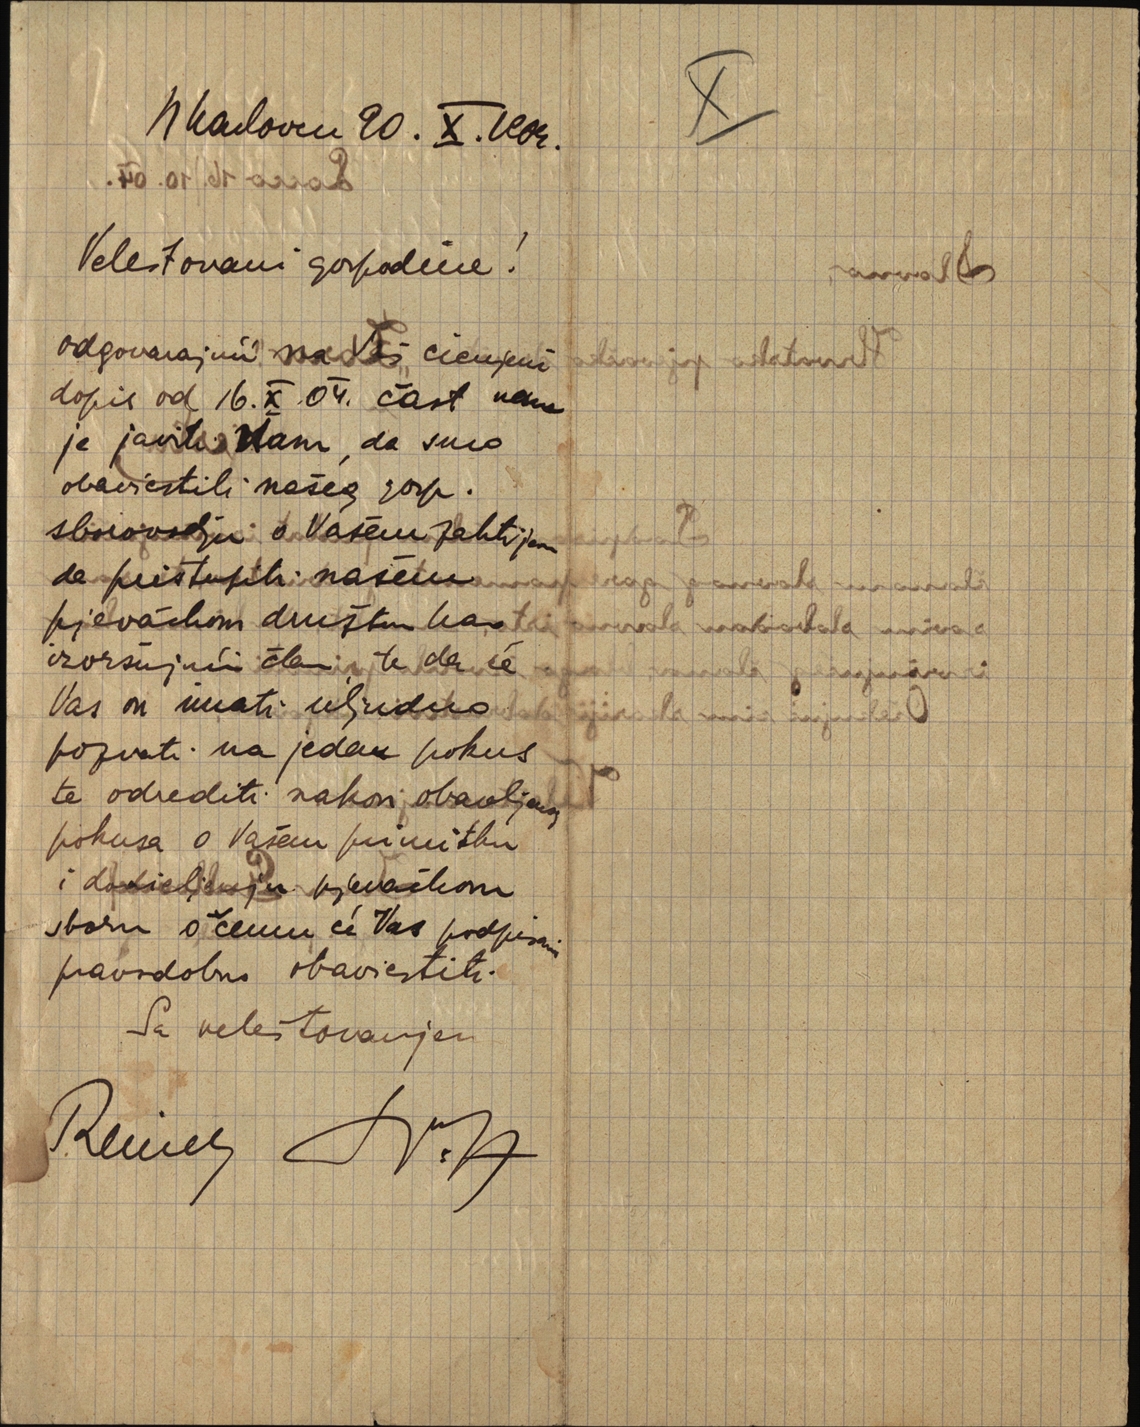 X
U Karlovcu 20. X. 1904.
Veleštovani gospodine!
odgovarajući na Vaš cienjeni
dopis od 16. X. 04. čast nam
je javiti Vam, da smo
obaviestili našeg gosp.
sborovodju o Vašem zahtjevu
da pristupiti našem
pjevačkom društvu kao
izvršujući član, te da će
Vas on imati uljudno
pozvati na jedan pokus
te odrediti nakon obavljenog
pokusa o Vašem primitku
i dodieljenju pjevačkom
sboru o čemu će Vas podpisani
pravodobno obaviestiti.
Sa veleštovanjem